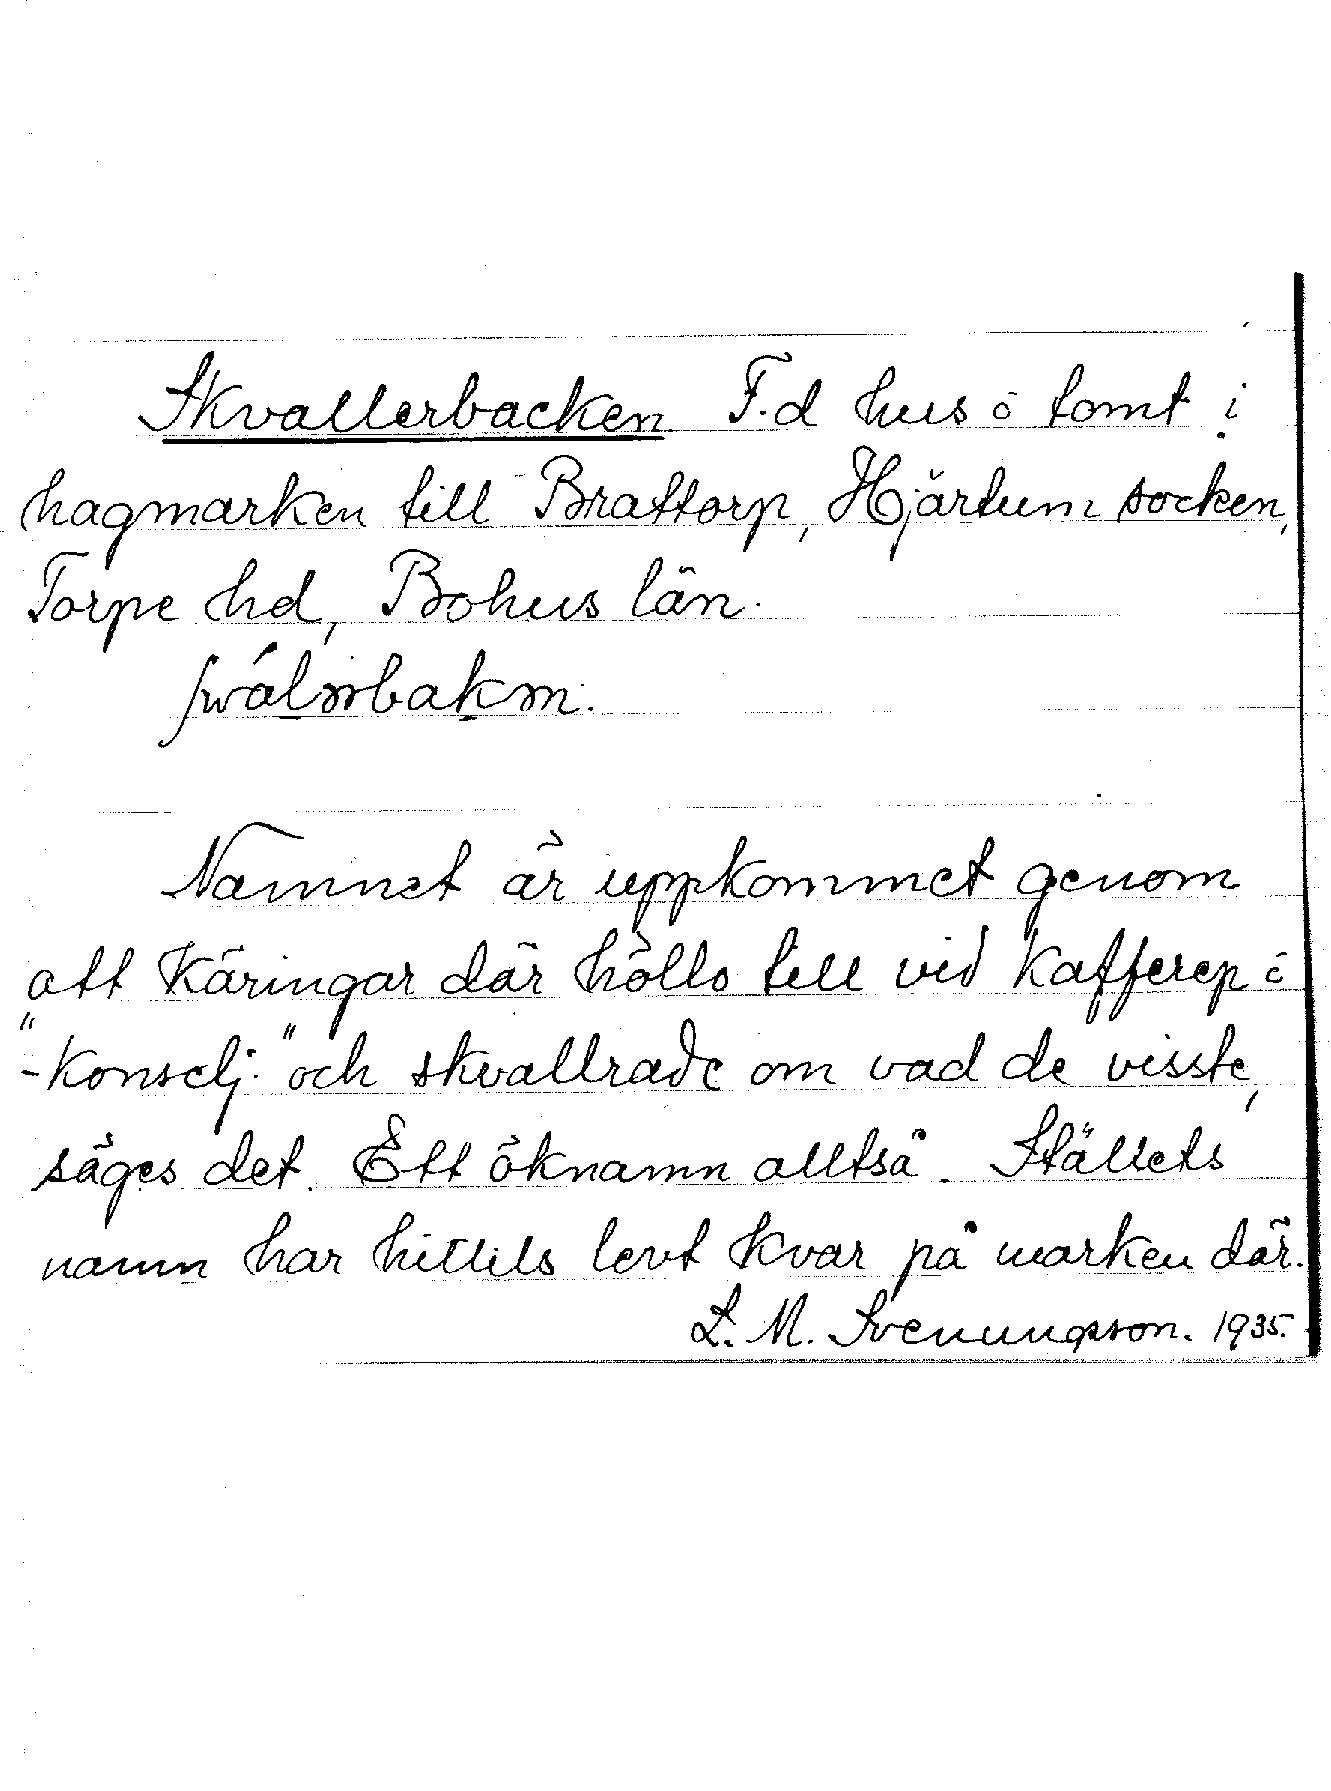 Skvallerbacken F.d hus o tomt i
hagmarken till Brattorp, Hjärtum socken,
Torpe hd, Bohus län.
Namnet är uppkommet genom
att käringar där höllo till vid kafferep o
"-konselj" och skvallrade om vad de visste,
säges det. Ett öknamn alltså. Ställets
namn har hittils levt kvar på marken där.
L. M. Svenungsson. 1935.